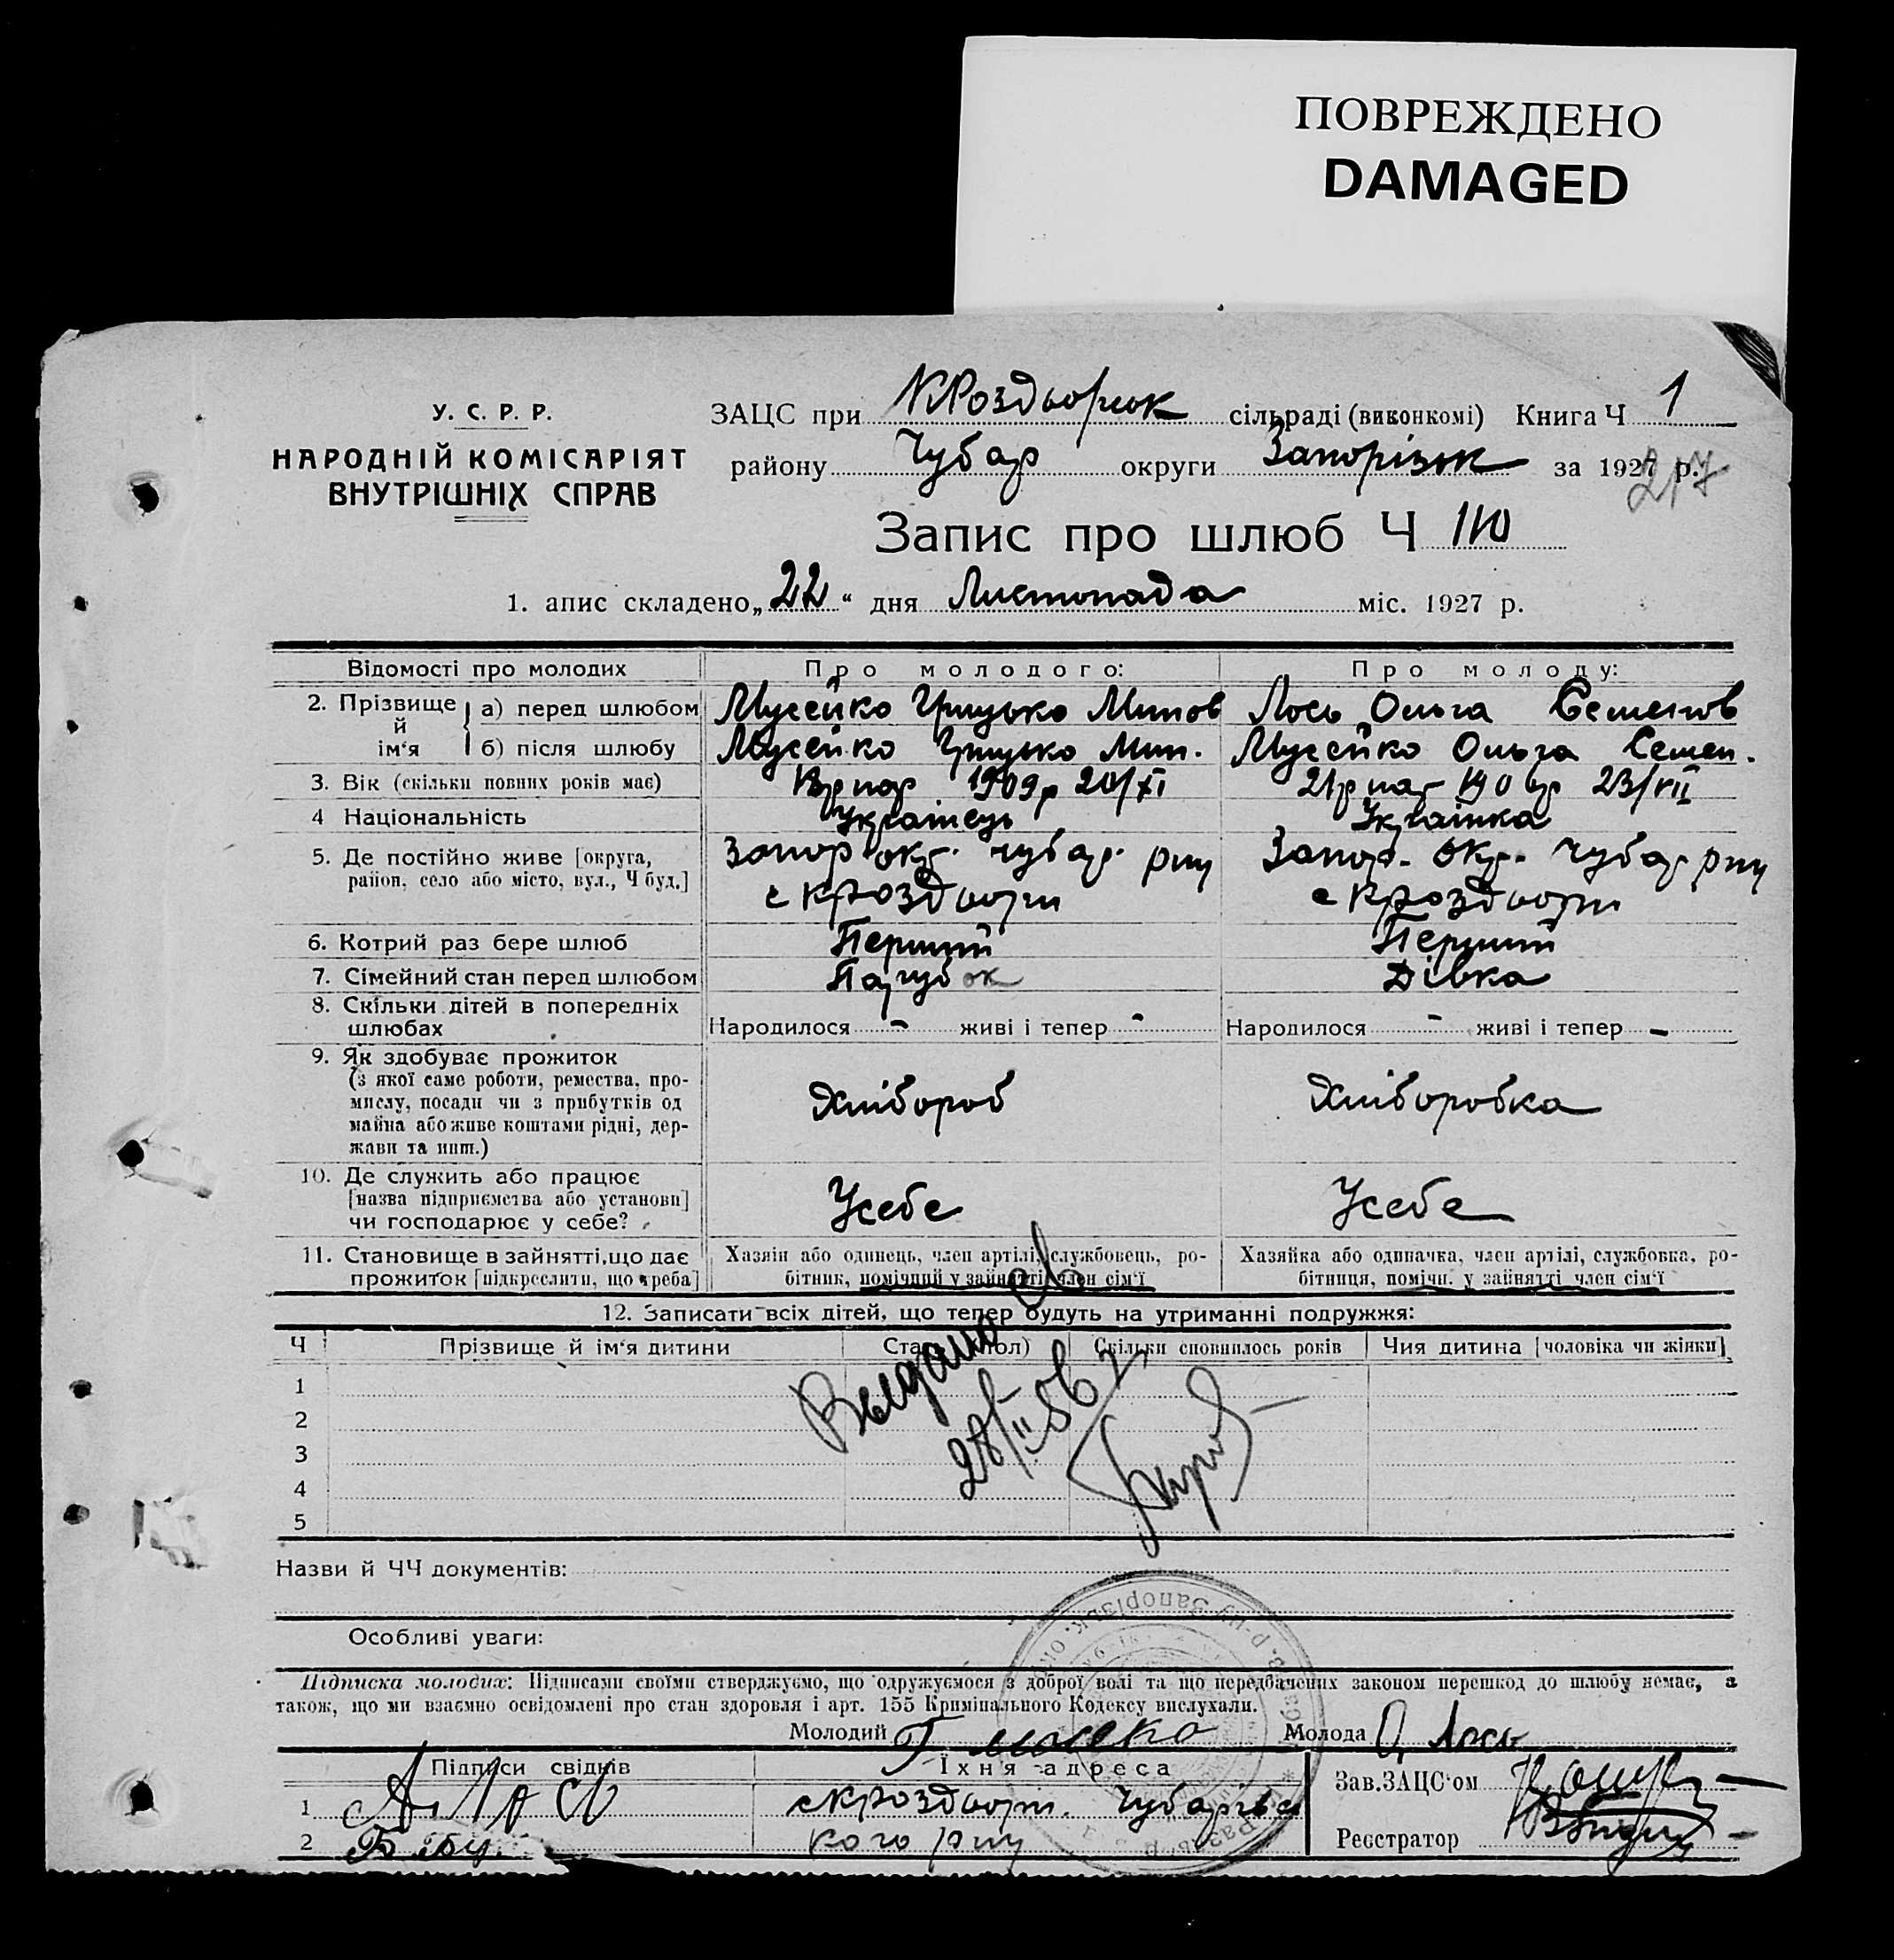 ПОВРЕЖДЕНО
DAMAGED
У. С. Р. Р.
НАРОДНІЙ КОМІСАРІЯТ
ВНУТРІШНІХ СПРАВ
ЗАЦС при КРоздорськ сільраді (виконкомі) Книга Ч 1
району Чубар округи Запорізьк за 1927 р.
217
Запис про шлюб Ч 110
1. апис складено „22“ дня Листопада міс. 1927 р.
Відомості про молодих Про молодого: Про молоду:
2. Прізвище й ім'я
а) перед шлюбом Мусейко Грицько Мит̲ов Лось Ольга Семенов
б) після шлюбу Мусейко Грицько Мусейко Ольга Семен.
3. Вік (скільки повних років має) 1909р 20/XI 21р 1906р 23/VII
4 Національність Українець Українка
5. Де постійно живе [округа, Запор окр. Чубар. рну Запор. окр. Чубар рну
район, село або місто, вул., Ч буд.] с КРоздори с КРоздори
6. Котрий раз бере шлюб Перший Перший
7. Сімейний стан перед шлюбом Парубок Дівка
8. Скільки дітей в попередніх
шлюбах Народилося - живі і тепер - Народилося - живі і тепер -
9. Як здобуває прожиток
(з якої саме роботи, ремества, про-
мислу, посади чи з прибутків од
майна або живе коштами рідні, дер-
жави та инш.)
Хлібороб Хліборобка
10. Де служить або працює
[назва підприємства або установи]
чи господарює у себе?
Усебе Усебе
11. Становище в зайнятті, що дає Хазяїн або одинець, член артілі, службовець, ро- Хазяйка або одиначка, член артілі, службовка, ро-
прожиток [підкреслити, що треба] бітник, помічний у зайнятті член сім'ї бітниця, помічн. у зайнятті член сім'ї
12. Записати всіх дітей, що тепер будуть на утриманні подружжя:
Ч Прізвище й ім'я дитини Стать (пол) Скільки сповнилось років Чия дитина [чоловіка чи жінки]
1
2
3
4
5
Выдано
28/II
Назви й ЧЧ документів:
Особливі уваги:
Підписка молодих: Підписами своїми стверджуємо, що одружуємося з доброї волі та що передбачених законом перешкод до шлюбу немає, а
також, що ми взаємно освідомлені про стан здоровля і арт. 155 Кримінального Кодексу вислухали.
Молодий Г Молода О Лось
Підписи свідків Їхня адреса Зав. ЗАЦС'ом
1 с КРоздори. Чубарівсь
2 кого рну Реєстратор